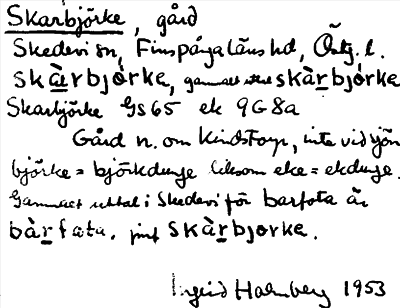 Skarbjörke, gård
Skedevi sn, Finspångaläns hd, Östg. l.
skàrbjòrke, gammalt uttal skàrbjòrke
Skarbjörke GS65 ek 9G8a
Gård n. om Kindstorp, inte vid sjön
björke = björkdunge liksom eke = ekdunge.
Gammalt uttal i Skedevi för barfota är
bàrfata, jmf skàrbjorke.
Ingrid Holmberg 1953